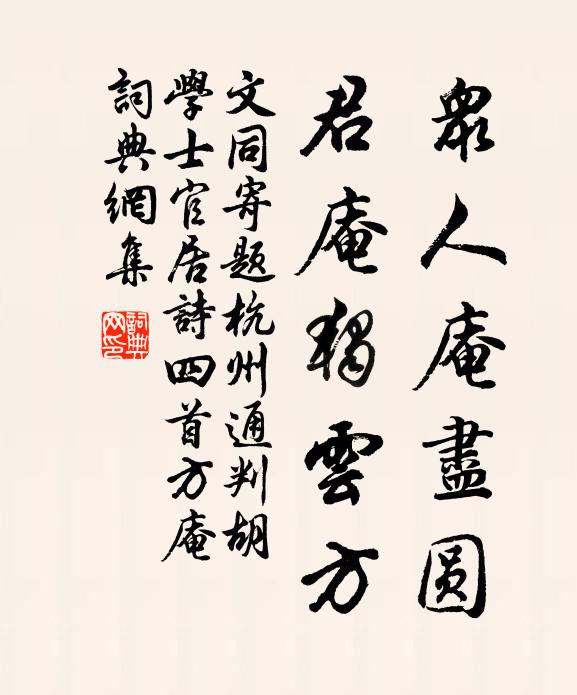 眾人庵盡圓
君庵獨雲方
文同寄題杭州通判胡
學士官居詩四首方庵
詞典網集
詞典
网印